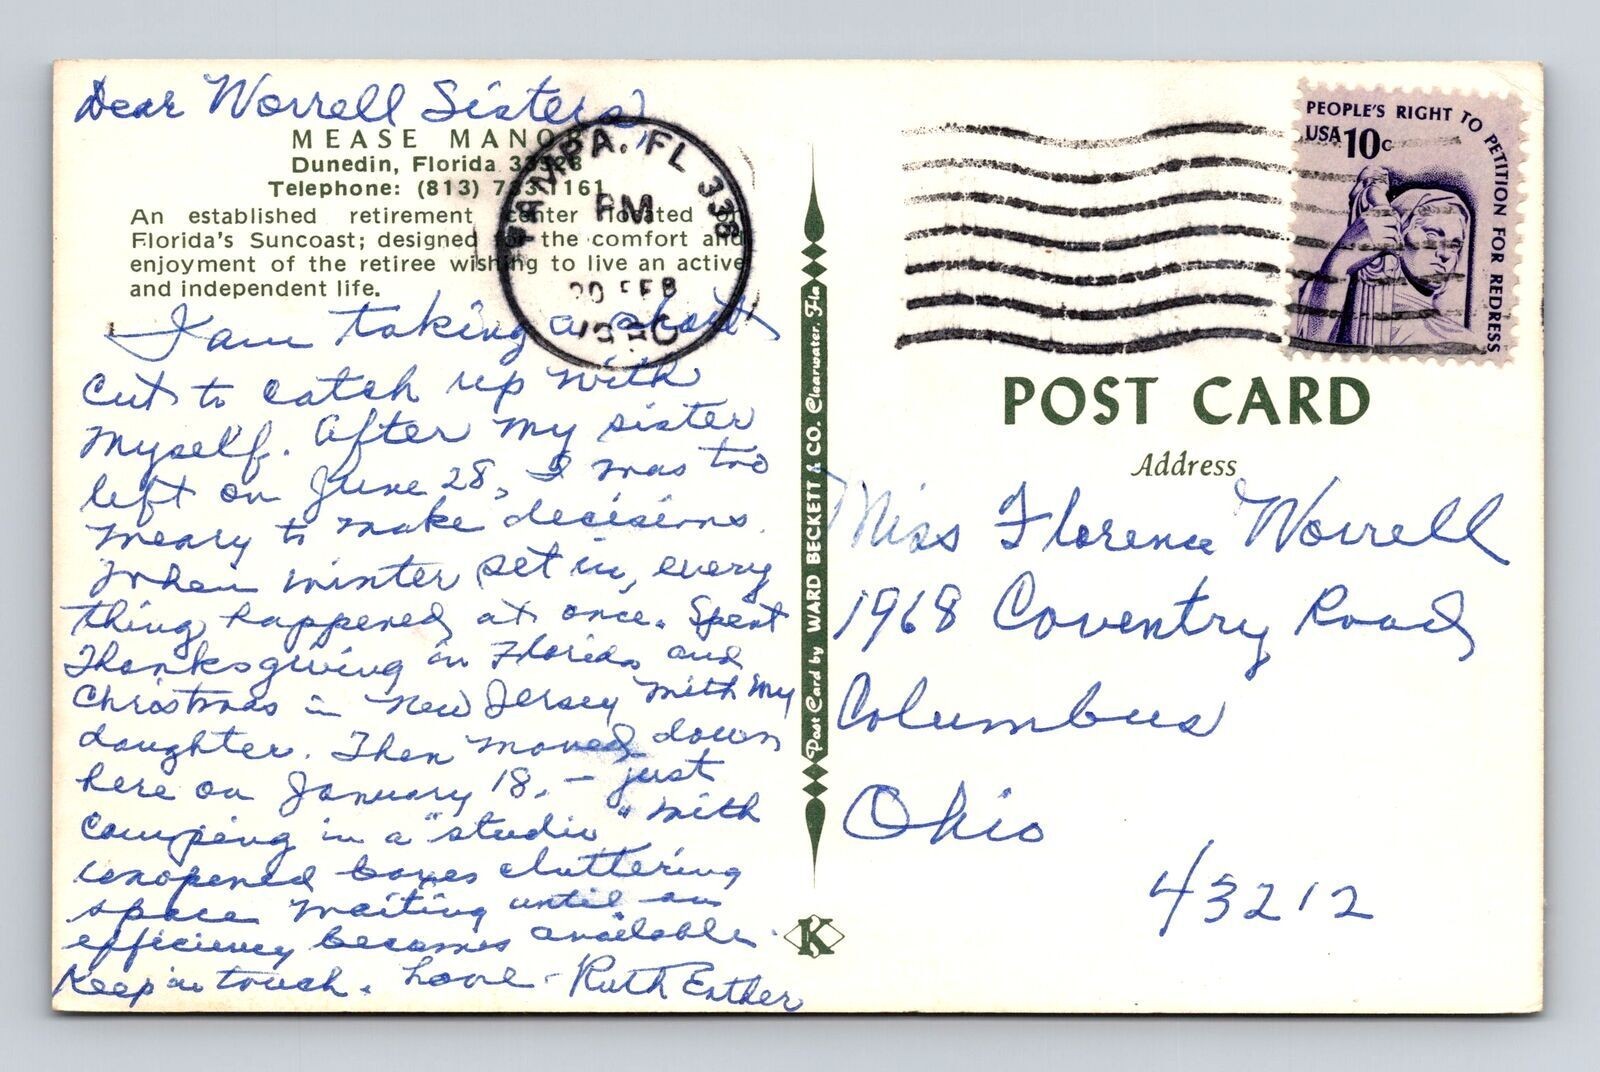 Dear Worrell Sisters,
MEASE MANOR
Dunedin, Florida 33528
Telephone: (813) 733-1161
An established retirement center located on
Florida's Suncoast; designed for the comfort and
enjoyment of the retiree wishing to live an active
and independent life.
I am taking a short
cut to catch up with
myself. After my sister
left on June 28, I was too
weary to make decisions.
When winter set in, every
thing happened at once. Spent
Thanksgiving in Florida and
Christmas in New Jersey with my
daughter. Then moved down
here on January 18, – just
camping in a "studio" with
unopened boxes cluttering
space waiting until an
efficiency becomes available.
Keep in touch. Love - Ruth Esther
TAMPA, FL 336
PM
20 FEB
Post Card by WARD BECKETT & CO. Clearwater, Fla
K
PEOPLE'S RIGHT TO PETITION FOR REDRESS
USA 10c
POST CARD
Address
Miss Florence Worrell
1968 Coventry Road
Columbus
Ohio
43212